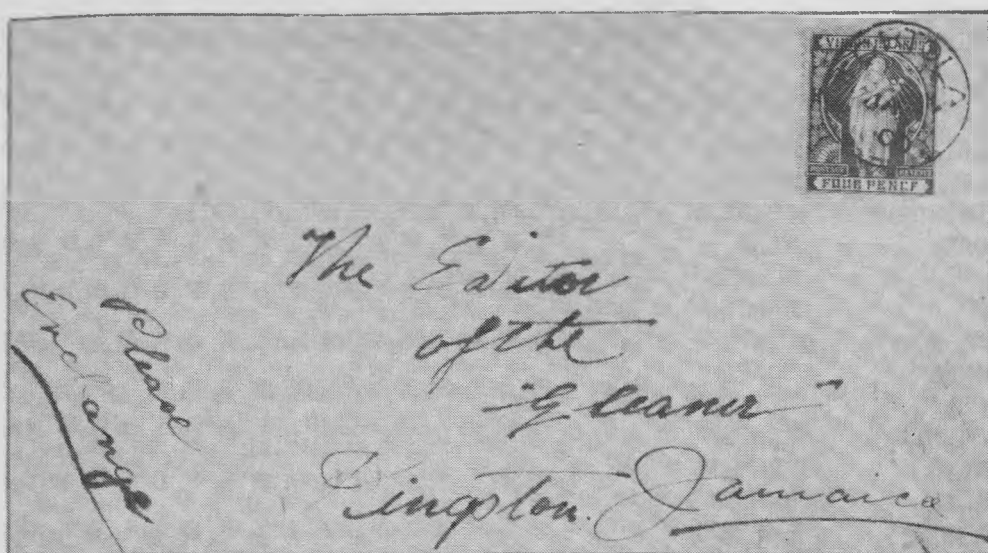 VIRGIN ISLANDS
FOUR PENCE
The Editor
of the
"Gleaner"
Kingston. Jamaica
Please
Exchange